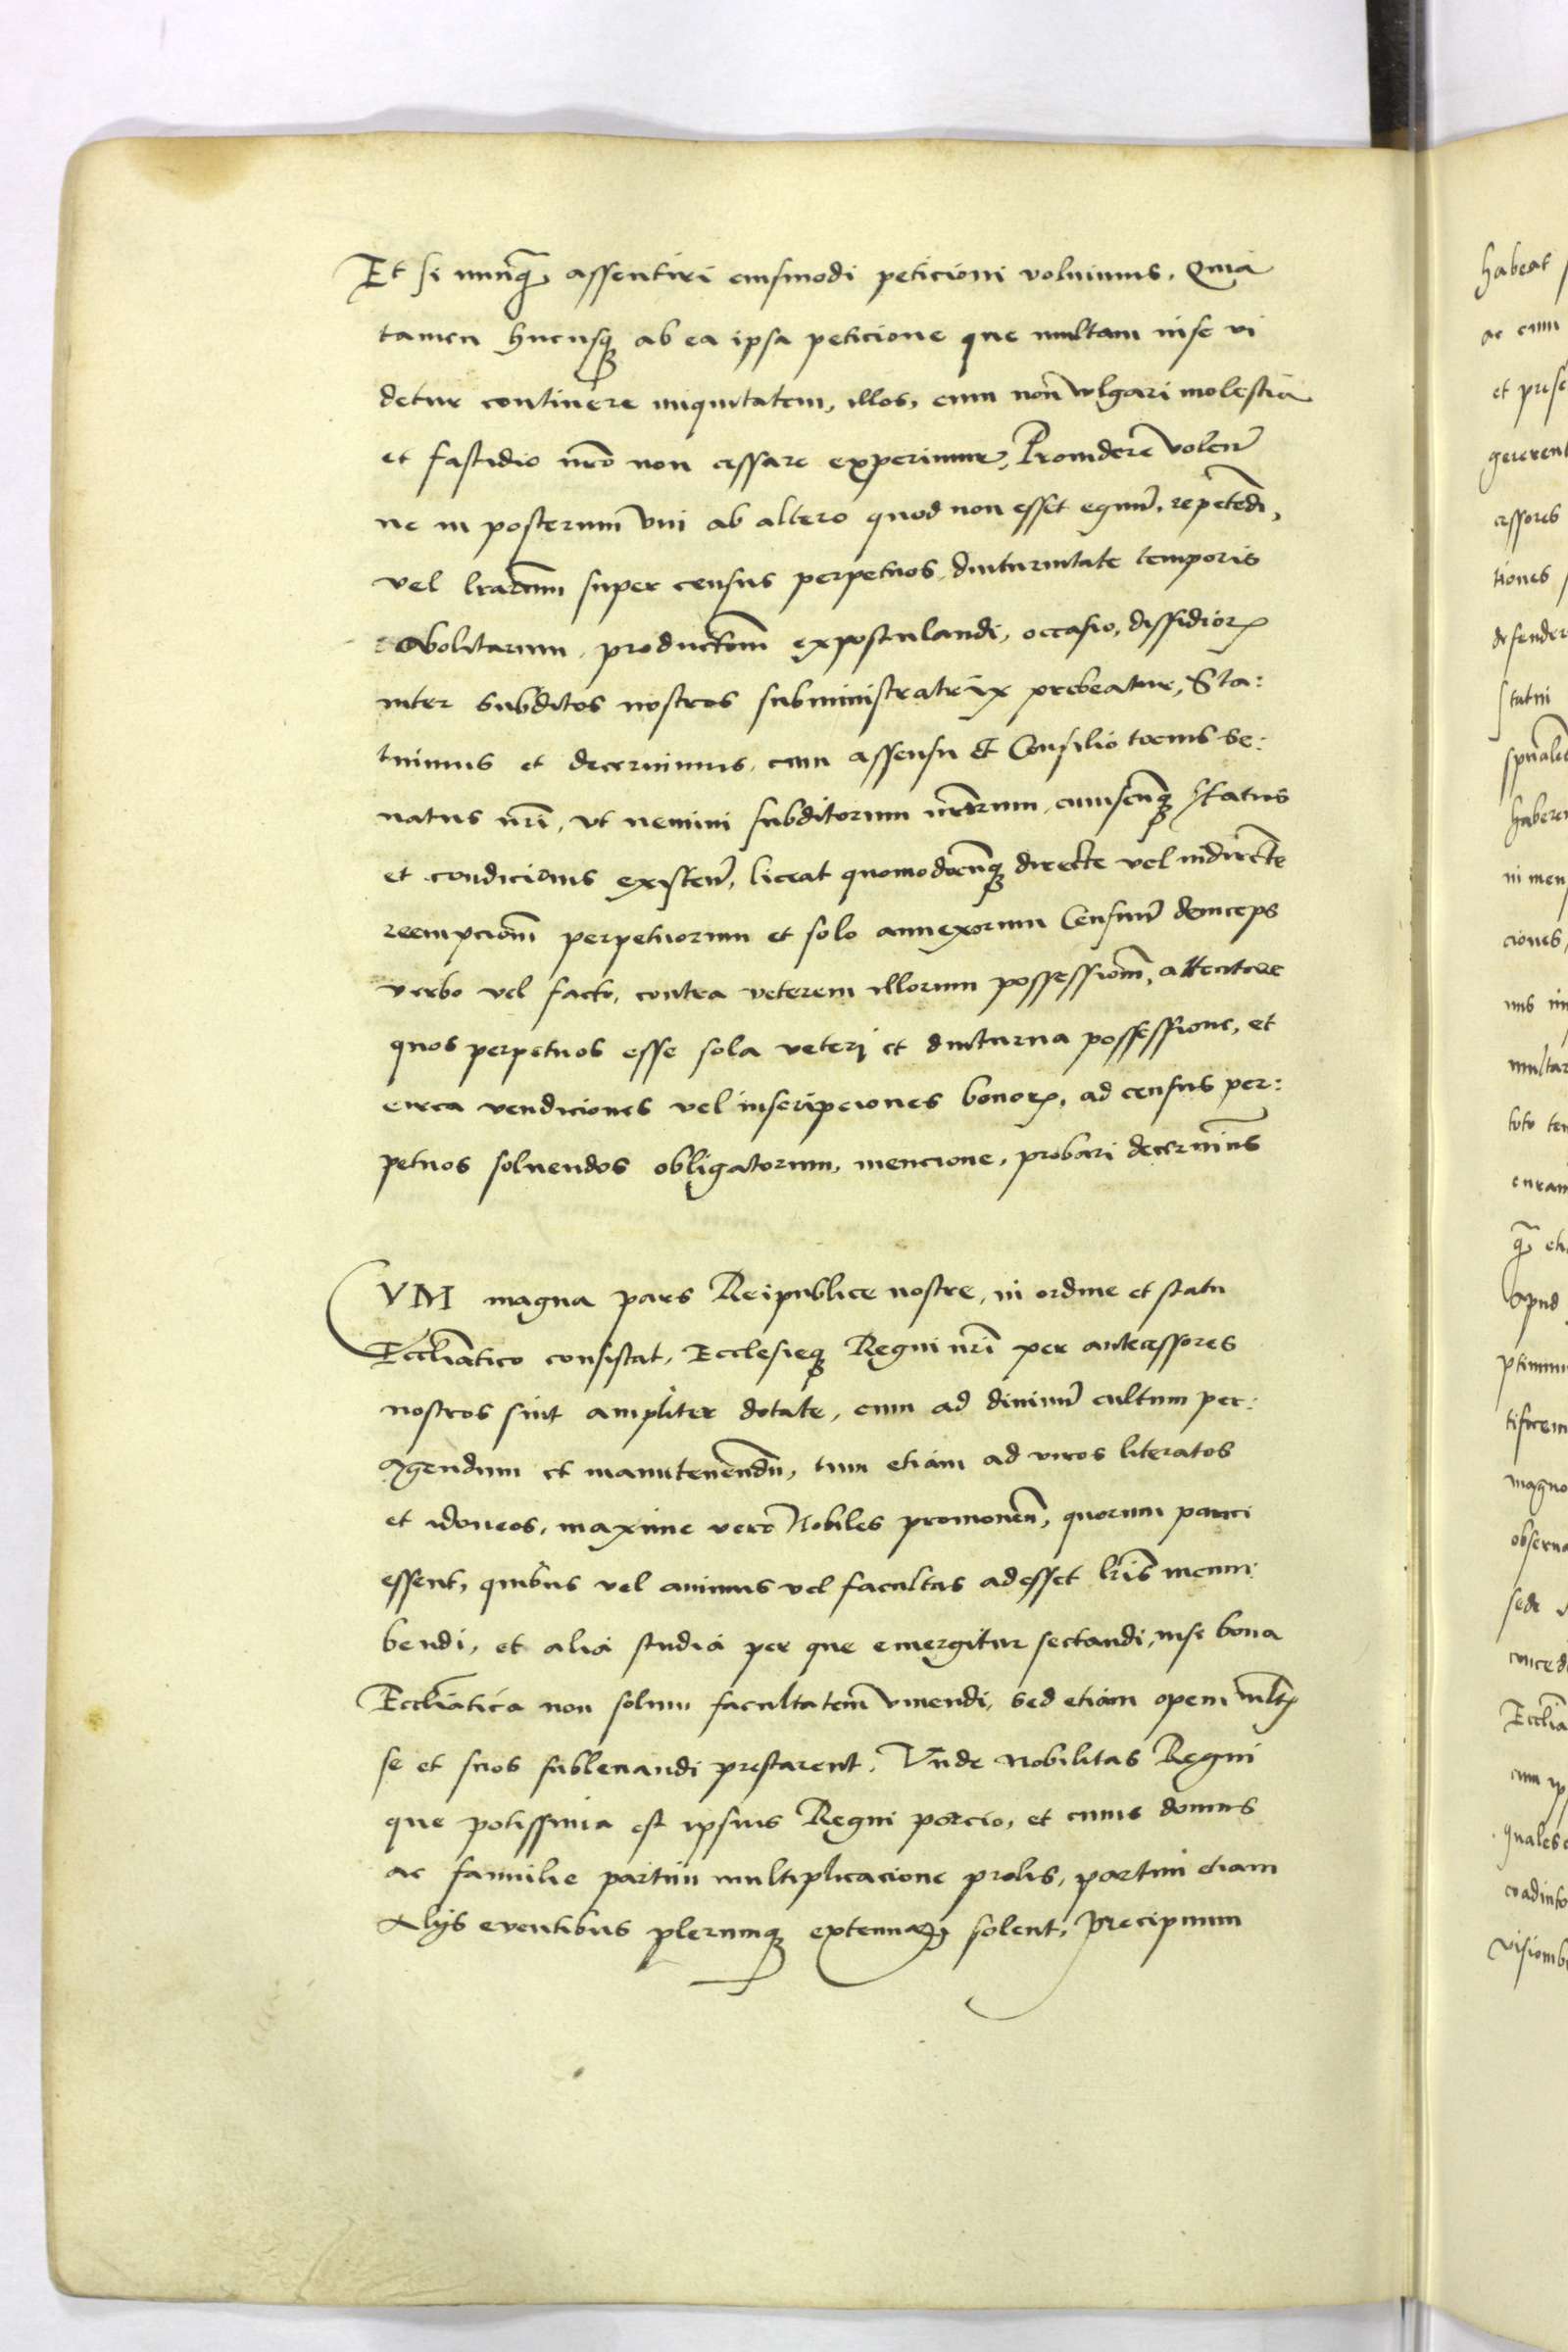 Et si nunq̃ assentiri eiusmodi peticioni voluimus. Quia
tamen hucusq; ab ea ipsa peticione que multam inse vi
detur continere iniquitatem, illos, cum non wlgari molestia
et fastidio nr̃o non cessare experimur, Prouidere volen̄
ne in posterum vni ab altero quod non esset equm̄, repetendi,
vel lrarum super census perpetuos, diuturnitate temporis
abolitarum, productionem̄ expostulandi, occasio, dissidiorꝝ
inter subditos nostros subministratrix prebeatur, Sta:
tuimus et decernimus, cum assensu et Consilio tocius Se:
natus nr̃i, vt nemini subditorum nr̃orum, cuiuscunq; status
et condicionis existen̄, liceat quomodocunq; directe vel indirecte
reempcionem̄ perpetuorum et solo annexorum Censuum̄ deinceps
verbo vel facto, contra veterem illorum possessionem̄, attentare
quos perpetuos esse sola veteri et diuturna possessione, et
circa vendiciones vel inscripciones bonorꝝ, ad census per:
petuos soluendos obligatorum, mencione, probari decernimus
CVM magna pars Reipublice nostre, in ordine et statu
Eccliastico consistat, Ecclesieq; Regni nr̃i per antecessores
nostros sint ampliter dotate, cum ad diuinum̄ cultum per:
agendum et manutenendū, tum etiam ad viros literatos
et idoneos, maxime vero Nobiles promouen̄, quorum pauci
essent, quibus vel animus vel facultas adesset lr̃is incum
bendi, et alia studia per que emergitur sectandi, nisi bona
Eccliastica non solum facultatem viuendi, sed etiam opem mlt̃is
se et suos subleuandi prestarent. Vnde Nobilitas Regni
que potissima est ipsius Regni porcio, et cuius domus
ac familie partim multiplicacione prolis, partim etiam
alijs euentibus plerumq; extenuari solent, precipuum
habeat
ac cum
et prese
gererent
cessores
tiones
defender
statui
spũales
haberen
in men
ciones,
multar
toto tem
curam
apud
tificem
magno
obserua
sede
conced
Ecclia
cum ip
quales
coadiuto
visionib